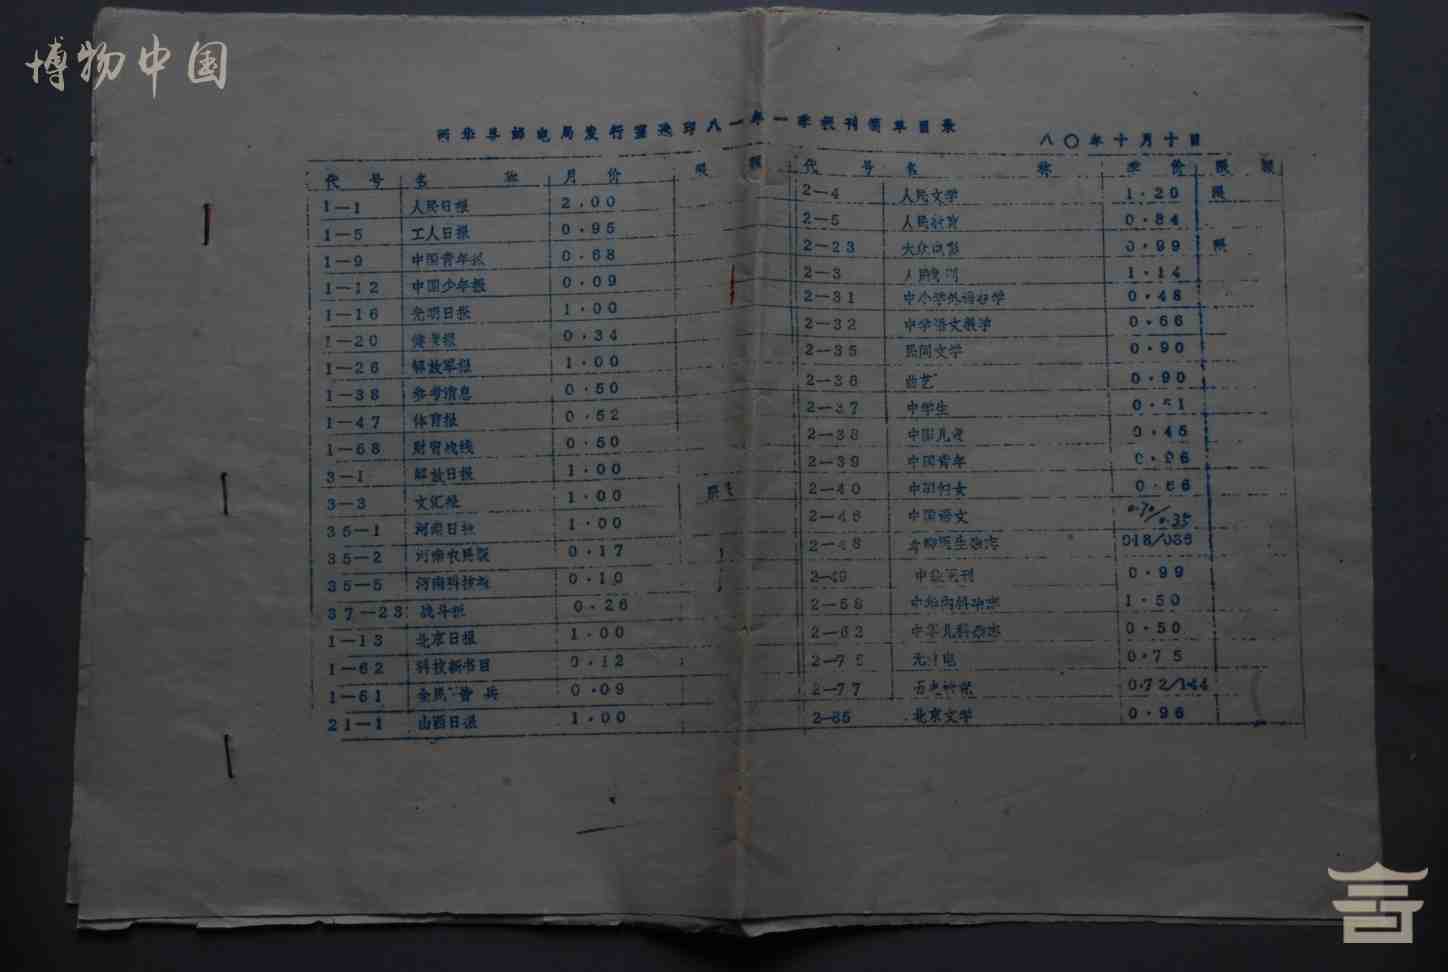 博物中国
西华县邮电局发行室选印八一年一季报刊简单目录
八〇年十月十日
代号 名称 月价 限额
1—1 人民日报 2.00
1—5 工人日报 0.95
1—9 中国青年报 0.68
1—12 中国少年报 0.09
1—16 光明日报 1.00
1—20 健康报 0.34
1—26 解放军报 1.00
1—38 参考消息 0.50
1—47 体育报 0.52
1—68 财贸战线 0.50
3—1 解放日报 1.00
3—3 文汇报 1.00 限
35—1 河南日报 1.00
35—2 河南农民报 0.17
35—5 河南科技报 0.10
37—23 战斗报 0.26
1—13 北京日报 1.00
1—62 科技新书目 0.12
1—61 全民 兵 0.09
21—1 山西日报 1.00
代号 名称 季价 限额
2—4 人民文学 1.20 限
2—5 人民教育 0.84
2—23 大众电影 0.99 限
2—3 人民 1.14
2—31 中小学外语教学 0.48
2—32 中学语文教学 0.66
2—35 民间文学 0.90
2—36 曲艺 0.90
2—37 中学生 0.51
2—38 中国儿童 0.45
2—39 中国青年 0.96
2—40 中国妇女 0.66
2—46 中国语文 0.70/0.35
2—48 赤脚医生杂志 018/036
2—49 中 0.99
2—58 中华内科杂志 1.50
2—62 中华儿科杂志 0.50
2—75 无线电 0.75
2—77 历史研究 0.72/1.44
2—85 北京文学 0.96